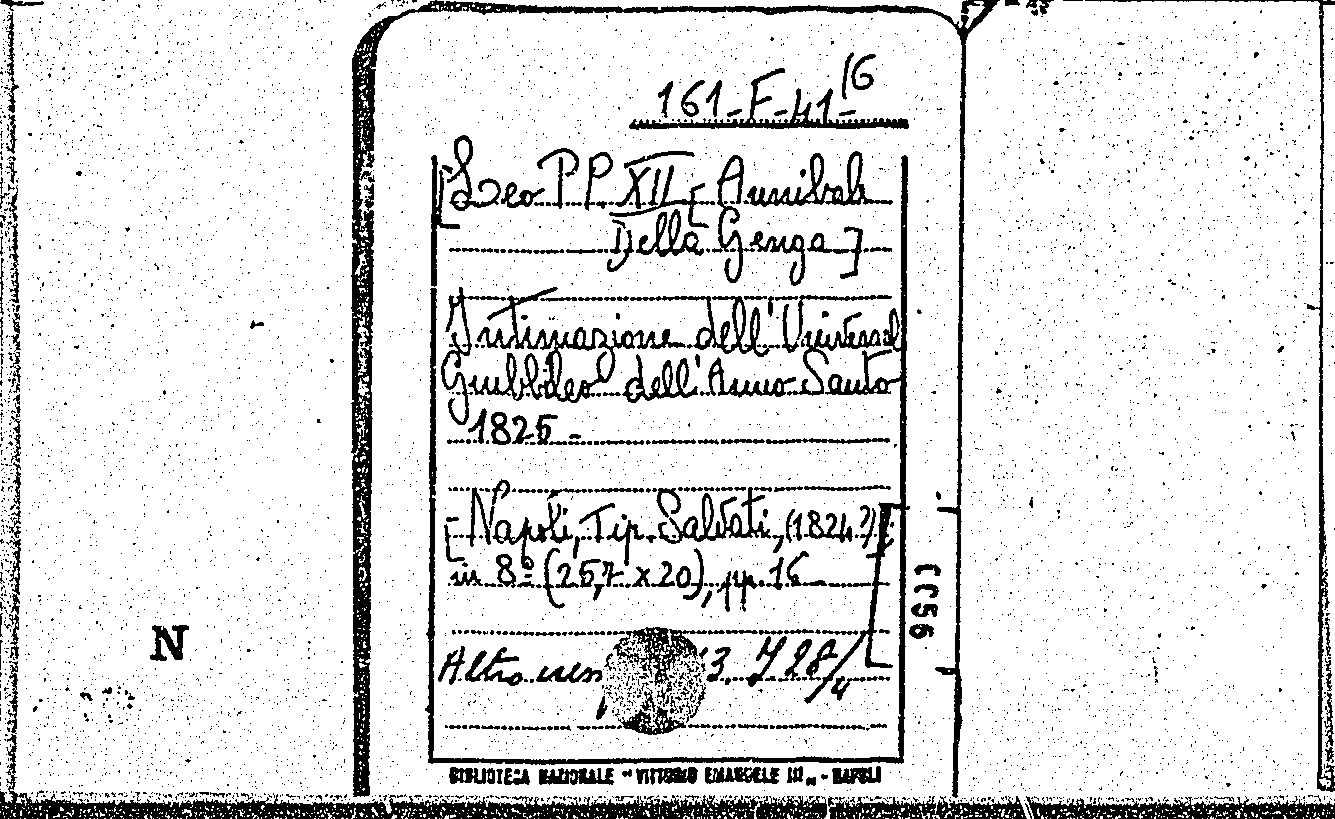 161-F-41 16
[Leo PP. XII [Annibale
Della Genga]
Intimazione dell'Universal
Giubbileo dell'Anno Santo
1825-
[Napoli, Tip. Salvati, (1824?)];
in 8º (25,7 x 20), pp. 16
Altro 3. J 28/4
N
BIBLIOTECA NAZIONALE "VITTORIO EMANUELE III" - NAPOLI